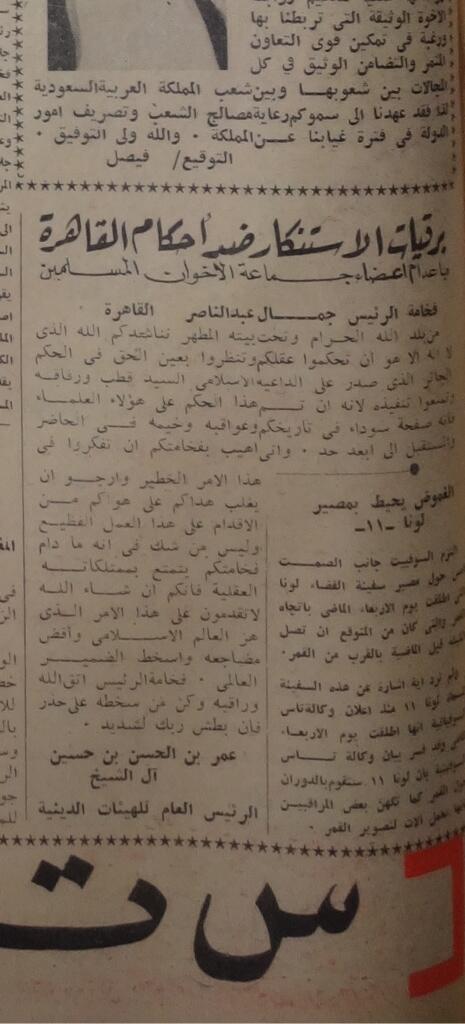 الاخوة الوثيقة التى تربطنا بها
ورغبة فى تمكين قوى التعاون
المثمر والتضامن الوثيق فى كل
المجالات بين شعوبها وبين شعب المملكة العربية السعودية
لذا فقد عهدنا الى سموكم رعاية مصالح الشعب وتصريف امور
الدولة فى فترة غيابنا عن المملكة ٠ والله ولى التوفيق ٠
التوقيع/ فيصل
برقيات الاستنكار ضد أحكام القاهرة
باعدام اعضاء جماعة الاخوان المسلمين
فخامة الرئيس جمال عبدالناصر القاهرة
من بلد الله الحرام وتحت بيته المطهر نناشدكم الله الذى
لا اله الا هو أن تحكموا عقلكم وتنظروا بعين الحق فى الحكم
الجائر الذى صدر على الداعيه الاسلامى السيد قطب ورفاقه
وتمنعوا تنفيذه لانه ان تم هذا الحكم على هؤلاء العلماء
فانه صفحة سوداء فى تاريخكم وعواقبه وخيمه فى الحاضر
والمستقبل الى ابعد حد ٠ وانى اهيب بفخامتكم ان تفكروا فى
هذا الامر الخطير وارجو ان
يغلب هداكم على هواكم من
الاقدام على هذا العمل الفظيع
وليس من شك فى انه ما دام
فخامتكم يتمتع بممتلكاته
العقلية فانكم ان شاء الله
لا تقدمون على هذا الامر الذى
هز العالم الاسلامى وأقض
مضاجعه واسخط الضمير
العالمى ٠ فخامة الرئيس اتق الله
وراقبه وكن من سخطه على حذر
فان بطش ربك لشديد ٠
عمر بن الحسن بن حسين
آل الشيخ
الرئيس العام للهيئات الدينية
الغموض يحيط بمصير
لونا -١١-
التزم السوفيت جانب الصمت
حول مصير سفينة الفضاء لونا
اطلقت يوم الاربعاء الماضى باتجاه
والتى كان من المتوقع ان تصل
قبل الماضية بالقرب من القمر ٠
ولم ترد اية اشارة عن هذه السفينة
لونا ١١ منذ اعلان وكالة تاس
السوفياتية انها اطلقت يوم الاربعاء
وقد فسر بيان وكالة تاس
بان لونا ١١ ستقوم بالدوران
القمر كما تكهن بعض المراقبين
تحمل آلات لتصوير القمر ٠
س ت